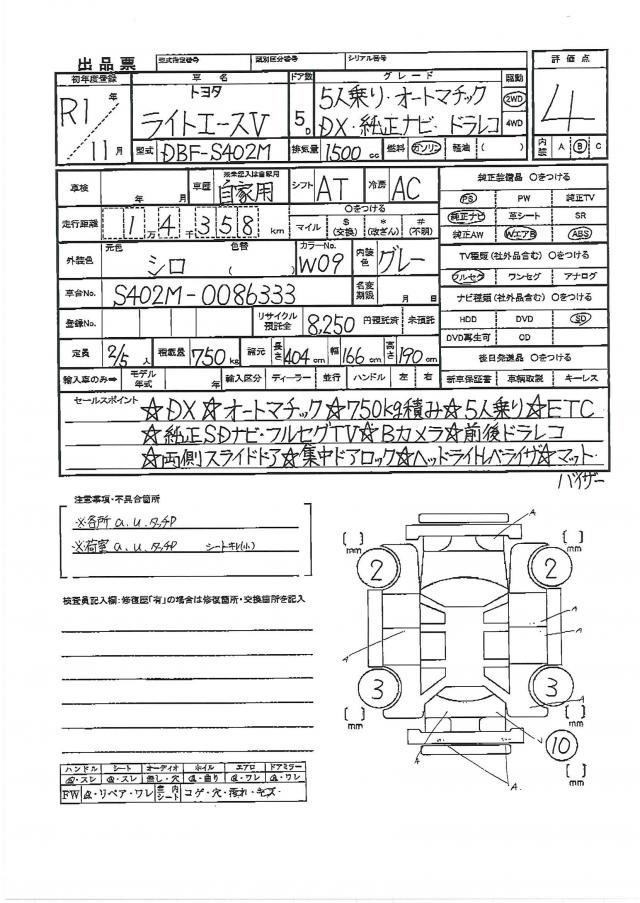 出品票
型式指定番号 類別区分番号 シリアル番号
初年度登録 車名 ドア数 グレード 駆動 評価点
R1年 トヨタ 5人乗り・オートマチック 2WD
11月 ライトエースV 5D DX・純正ナビ・ドラレコ 4WD 4
型式 DBF-S402M 排気量 1500cc 燃料 ガソリン 軽油 ( ) 内装 A B C
車検 年 月 車歴 ※未記入は自家用 自家用 シフト AT 冷房 AC 純正装備品 〇をつける
PS PW 純正TV
走行距離 1万4千358km 〇をつける 純正ナビ 革シート SR
マイル $(交換) *(改ざん) #(不明) 純正AW WエアB ABS
外装色 元色 シロ 色替 ( ) カラーNo. W09 内装色 グレー TV種類(社外品含む) 〇をつける
フルセグ ワンセグ アナログ
車台No. S402M-0086333 名変期限 月 日 ナビ種類(社外品含む) 〇をつける
登録No. リサイクル預託金 8,250 円預託済 未預託 HDD DVD SD
DVD再生可 CD
定員 2/5人 積載量 750kg 諸元 長さ 404cm 幅 166cm 高さ 190cm 後日発送品 〇をつける
輸入車のみ⇒ モデル年式 年 輸入区分 ディーラー 並行 ハンドル 左 右 新車保証書 車輌取説 キーレス
セールスポイント ☆DX☆オートマチック☆750kg積み☆5人乗り☆ETC
☆純正SDナビ・フルセグTV☆Bカメラ☆前後ドラレコ
☆両側スライドドア☆集中ドアロック☆ヘッドライトレベライザ☆マット・
バイザー
注意事項・不具合箇所
※各所 a.u.タッチP
※荷室 a.u.タッチP シートキレ(小)
検査員記入欄:修復歴「有」の場合は修復箇所・交換箇所を記入
[ ]mm A [ ]mm
2 2
A A
A
3 3
A
[ ]mm [ ]mm
A 10
A
ハンドル シート オーディオ ホイル エアロ ドアミラー
・スレ ・スレ 無し・穴 ・曲り ・ワレ ・ワレ
FW ・リペア・ワレ 室内シート コゲ・穴・汚れ・キズ・